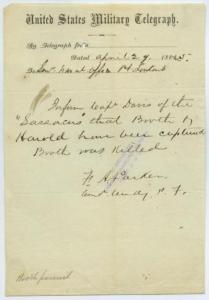 United States Military Telegraph.
By Telegraph from
Dated April 29 1865.
To Pt Lookout
Inform Capt Davis of the
"Sassacus" that Booth &
Harold have been captured
Booth was killed
F A Parker
Comdg P. F.
Booth pursuit